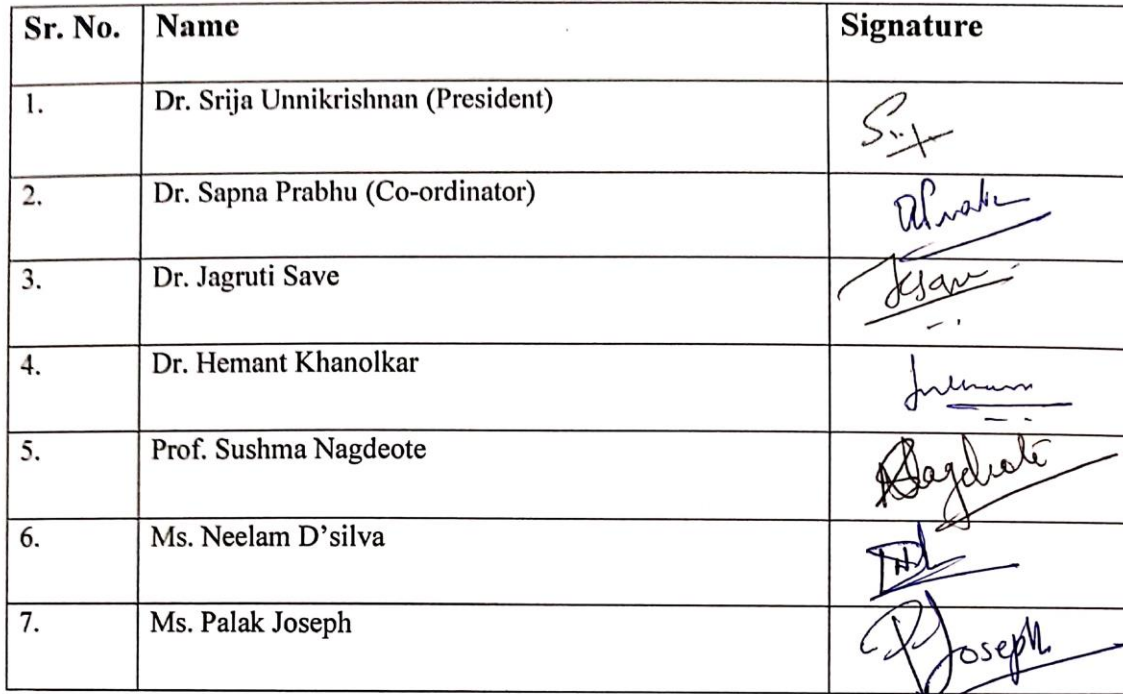 Sr. No. Name Signature
1. Dr. Srija Unnikrishnan (President)
2. Dr. Sapna Prabhu (Co-ordinator)
3. Dr. Jagruti Save
4. Dr. Hemant Khanolkar
5. Prof. Sushma Nagdeote Nagdeote
6. Ms. Neelam D'silva
7. Ms. Palak Joseph P Joseph